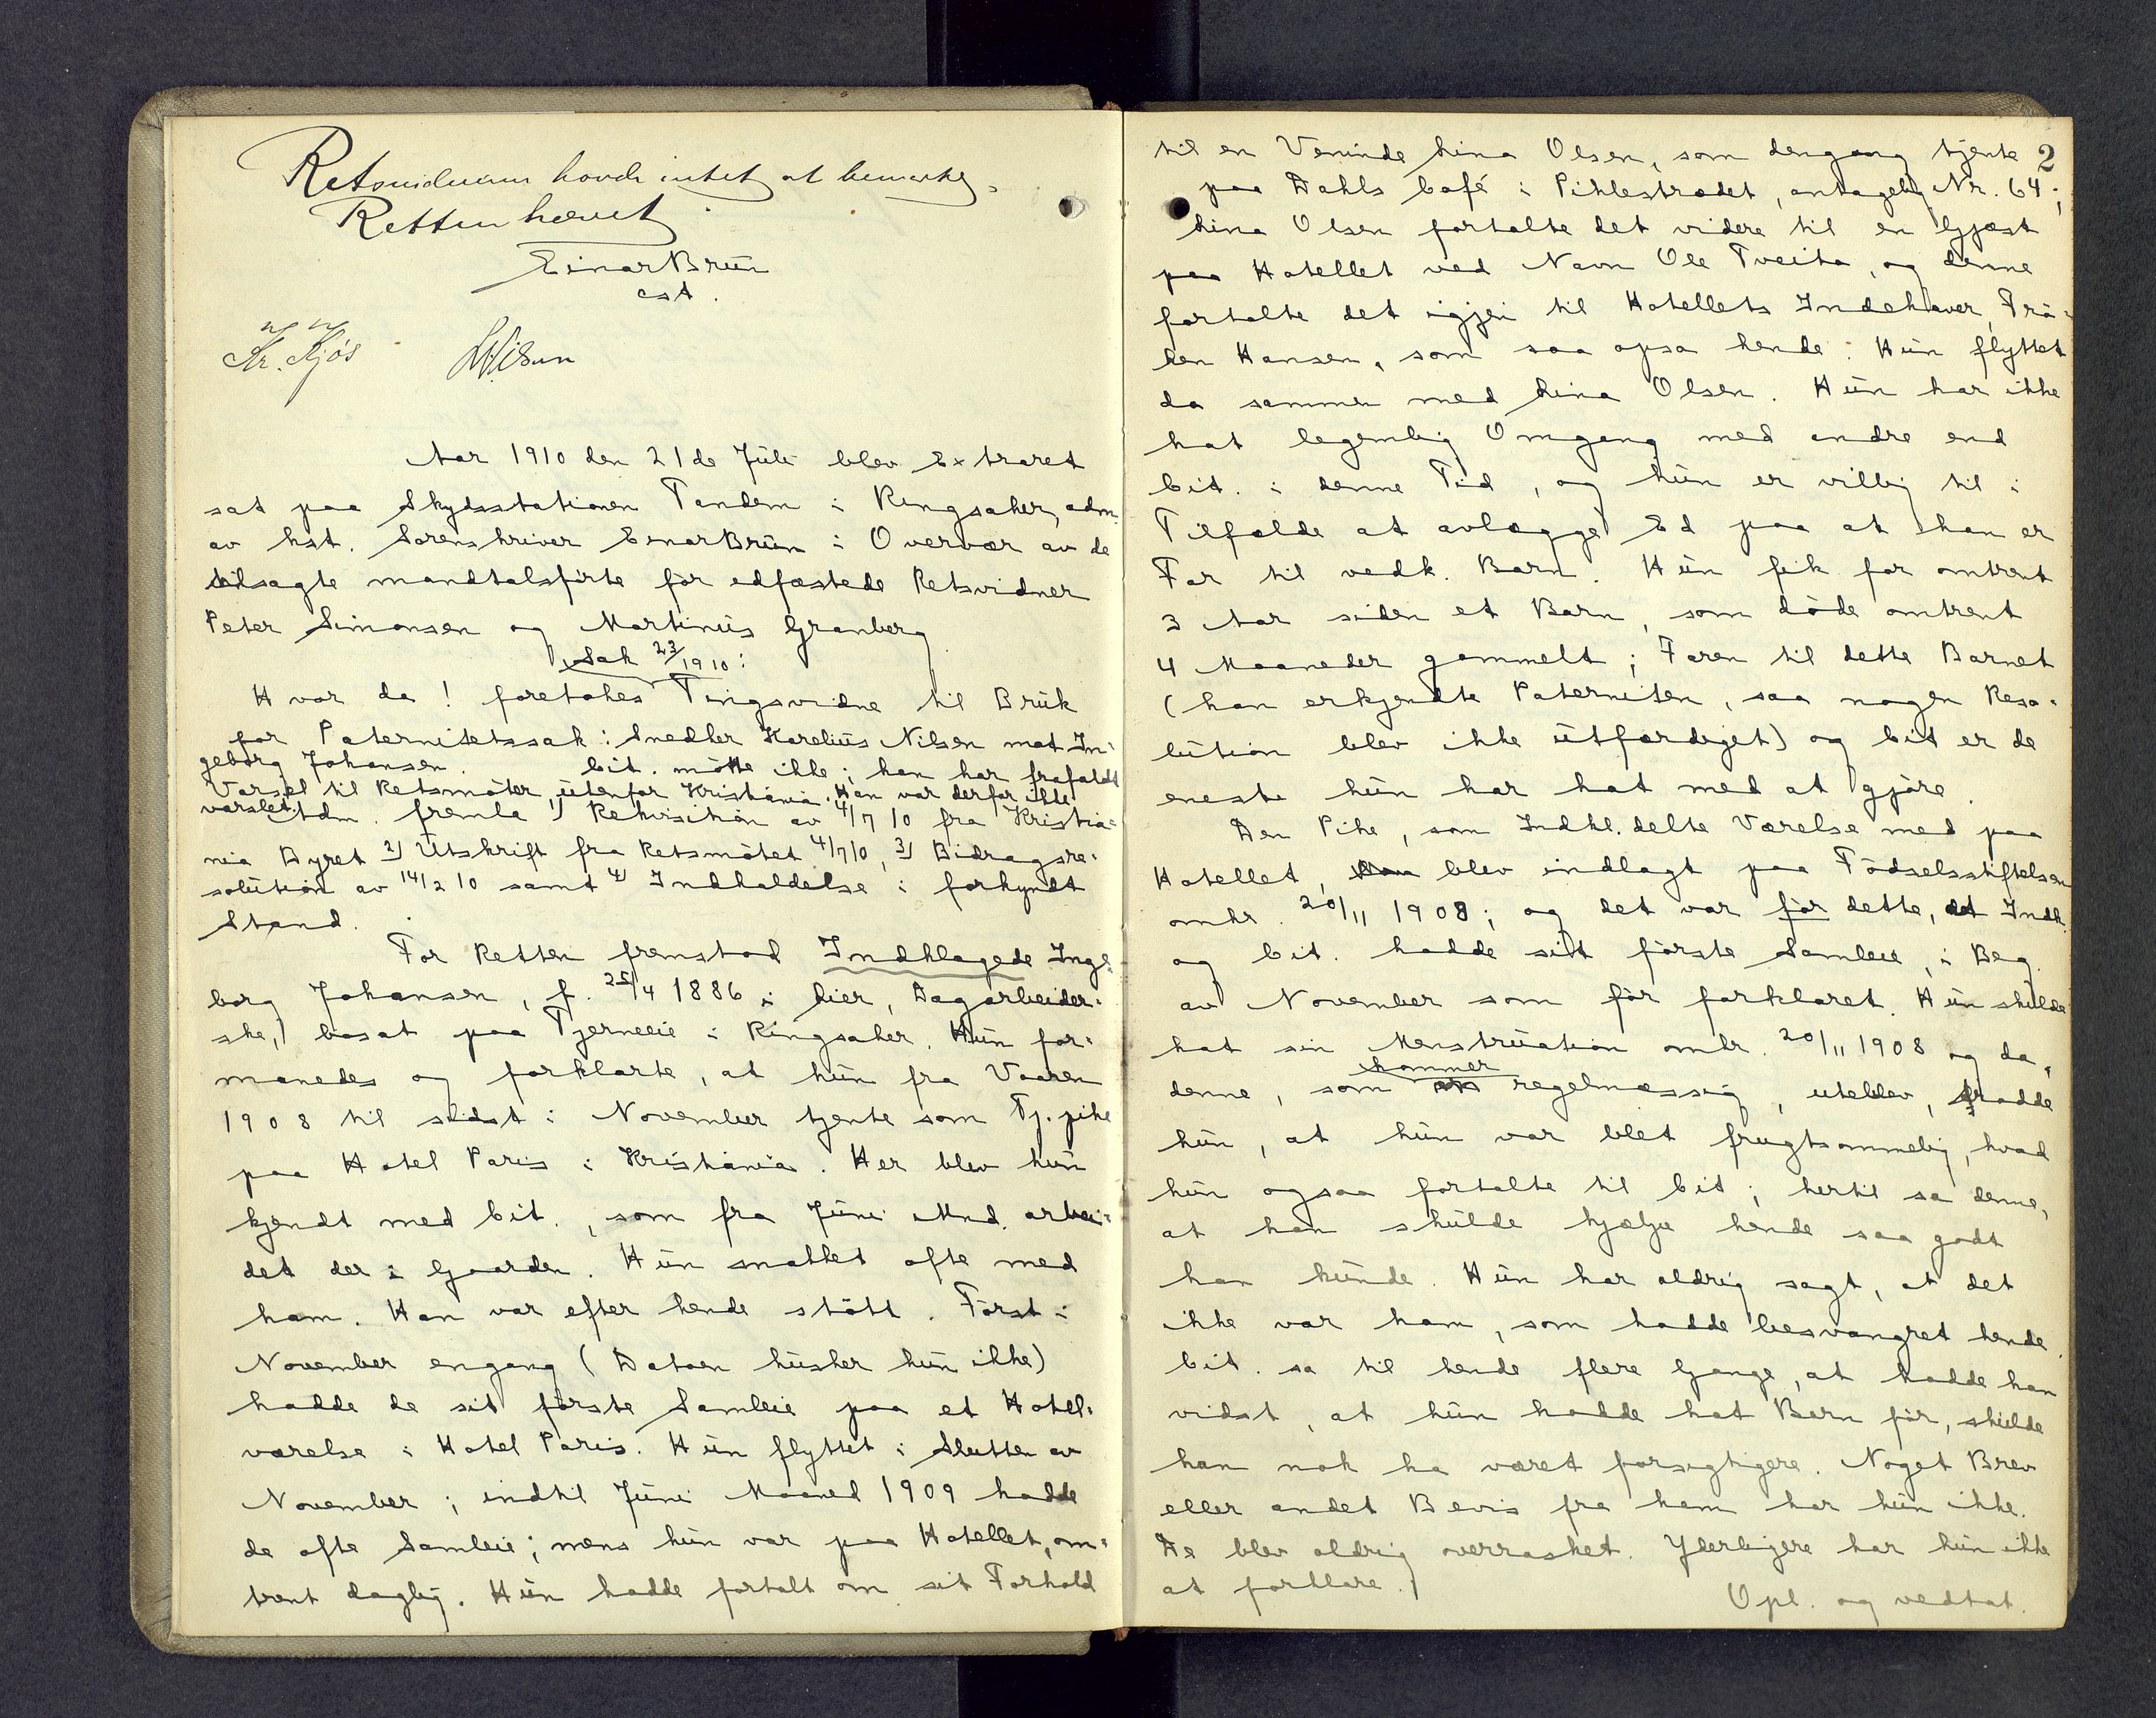 Retsvidnerne havde intet at bemærke.
Retten hævet
Einar Brun
cst.
Kr. Kjøs
Aar 1910 den 21de Juli blev Extraret
sat paa Skydsstationen Tandem i Ringsaker, adm.
av kst. Sorenskriver Einar Brun i Overvær av de
tilsagte mandtalsførte før edfæstede Retsvidner
Peter Simonsen og Martinus Granberg
Sak 23/1910:
Hvor da! foretokes Tingsvidne til Bruk
for Paternitetssak: Snedker Karelius Nilsen mot In-
geborg Johansen. Cit. møtte ikke; han har frafaldt
Varsel til Retsmøter utenfor Kristiania. Han var derfor ikke
varslet. Adm. fremla 1) Rekvisition av 4/7 10 fra Kristia-
nia Byret 2) Utskrift fra Retsmøtet 4/7 10, 3) Bidragsre-
solution av 14/2 10 samt 4) Indkaldelse i forkyndt
Stand.
For Retten fremstod Indklagede Inge-
borg Johansen, f. 25/4 1886 i Lier, Dagarbeider-
ske, bosat paa Tjerneeie i Ringsaker. Hun for-
manedes og forklarte, at hun fra Vaaren
1908 til sidst i November tjente som Tj.pike
paa Hotel Paris i Kristiania. Her blev hun
kjendt med Cit., som fra Juni Mnd. arbei-
det der i Gaarden. Hun snakket ofte med
ham. Han var efter hende støtt. Først i
November engang (Datoen husker hun ikke)
hadde de sit første Samleie paa et Hotel-
værelse i Hotel Paris. Hun flyttet i Slutten av
November; indtil Juni Maaned 1909 hadde
de ofte Samleie; mens hun var paa Hotellet, om-
trent daglig. Hun hadde fortalt om sit Forhold
2
til en Veninde Lina Olsen, som dengang tjente
paa Dahls Café i Pilestrædet, antagelig Nr. 64;
Lina Olsen fortalte det videre til en Gjæst
paa Hotellet ved Navn Ole Tveita, og denne
fortalte det igjen til Hotellets Indehaver, Frø-
ken Hansen, som saa opsa hende. Hun flyttet
da sammen med Lina Olsen. Hun har ikke
hat legemlig Omgang med andre end
Cit. i denne Tid, og hun er villig til i
Tilfælde at avlægge Ed paa at han er
Far til vedk. Barn. Hun fik for omtrent
3 Aar siden et Barn, som døde omtrent
4 Maaneder gammelt; Faren til dette Barnet
(han erkjendte Paterniteten, saa nogen Reso-
lution blev ikke utfærdiget) og Cit er de
eneste hun har hat med at gjøre.
Den Pike, som Indkl. delte Værelse med paa
Hotellet, blev indlagt paa Fødselsstiftelsen
omkr. 20/11 1908; og det var før dette, at Indk.
og Cit. hadde sitt første Samleie, i Beg.
av November som før forklaret. Hun skulde
hat sin Menstruation omkr. 20/11 1908 og da
kommer
denne, som regelmæssig, uteblev, trodde
hun, at hun var blet frugtsommelig, hvad
hun ogsaa fortalte til Cit; hertil sa denne,
at han skulde hjælpe hende saa godt
han kunde. Hun har aldrig sagt, at det
ikke var ham, som hadde besvangret hende.
Cit. sa til hende flere Gange, at hadde han
vidst, at hun hadde hat Barn før, skulde
han nok ha været forsigtigere. Noget Brev
eller andet Bevis fra ham har hun ikke.
De blev aldrig overrasket. Yderligere har hun ikke
at forklare.
Opl. og vedtat.